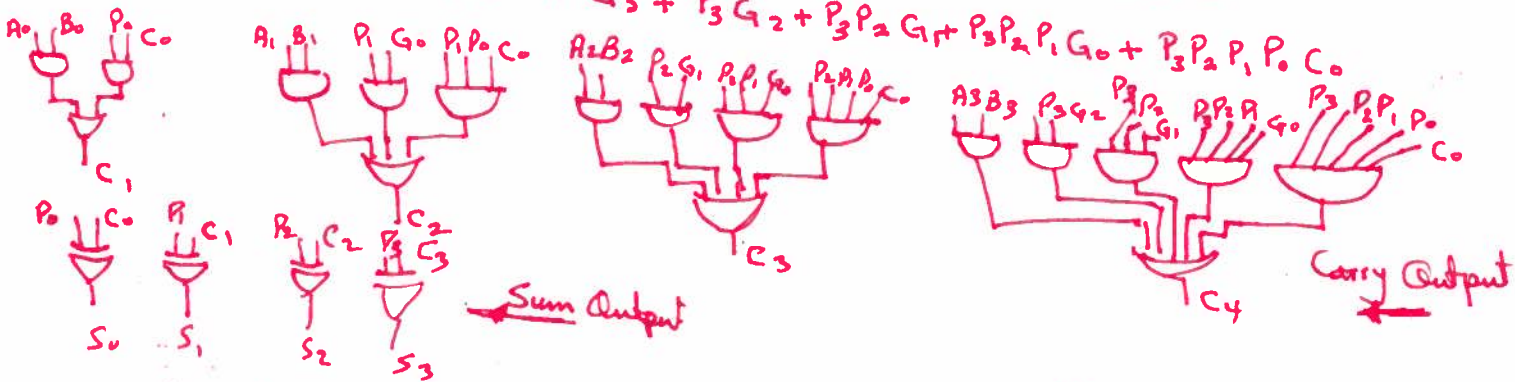 G3 + P3 G2 + P3 P2 G1 + P3 P2 P1 G0 + P3 P2 P1 P0 C0
A0 B0 P0 C0
A1 B1 P1 G0 P1 P0 C0
A2 B2 P2 G1 P2 P1 G0 P2 P1 P0 C0
A3 B3 P3 G2 P3 P2 G1 P3 P2 P1 G0 P3 P2 P1 P0 C0
C1
C2
C3
C4
P0 C0 P1 C1 P2 C2 P3 C3
S0 S1 S2 S3
Sum Output
Carry Output